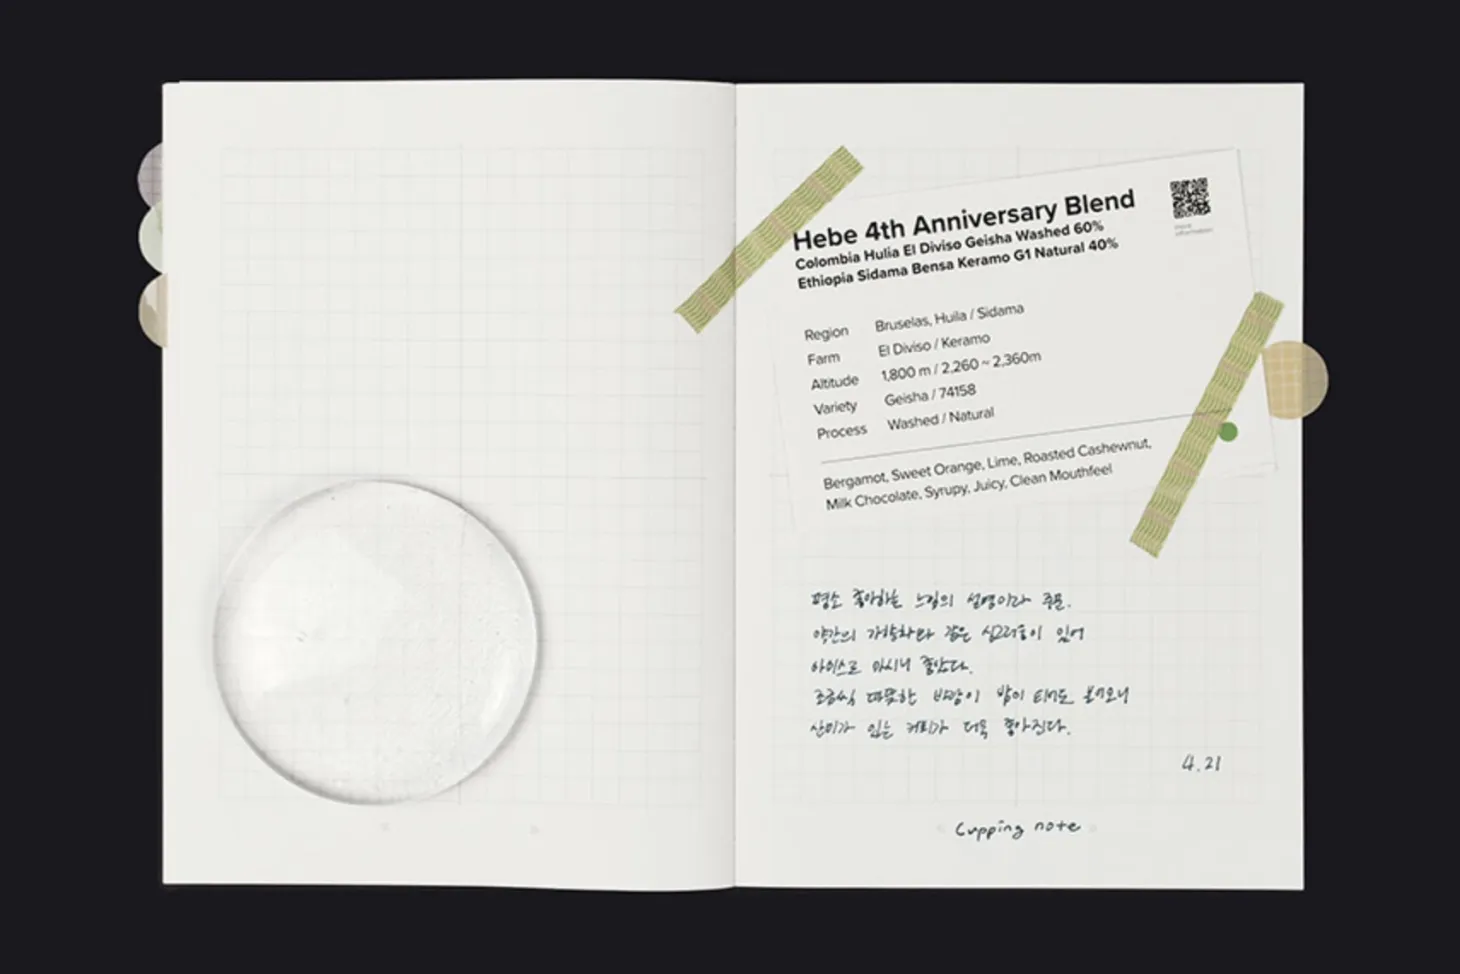 Hebe 4th Anniversary Blend
Colombia Hulia El Diviso Geisha Washed 60%
Ethiopia Sidama Bensa Keramo G1 Natural 40%
more
information
Region Bruselas, Huila / Sidama
Farm El Diviso / Keramo
Altitude 1,800 m / 2,260 ~ 2,360m
Variety Geisha / 74158
Process Washed / Natural
Bergamot, Sweet Orange, Lime, Roasted Cashewnut,
Milk Chocolate, Syrupy, Juicy, Clean Mouthfeel
평소 좋아하는 느낌의 설명이라 주문.
약간의 가향차와 같은 싱그러움이 있어
아이스로 마시니 좋았다.
조금씩 따뜻한 바람이 밤이 되어도 불어오니
산미가 있는 커피가 더욱 좋아진다.
4.21
Cupping note